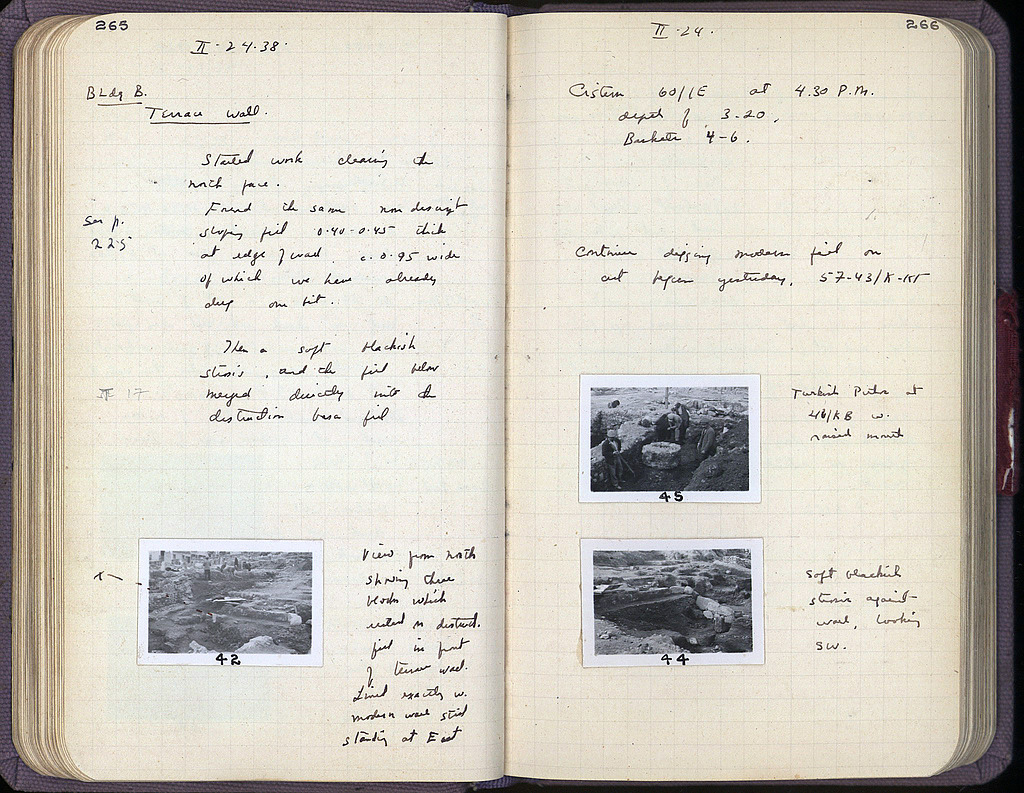 265
II·24·38·
Bldg B.
Terrace wall.
Started work clearing the
north face.
Found the same non descript
sloping fill 0.40-0.45 thick
at edge of wall. c. 0.95 wide
of which we have already
dug one bit.
See p.
225
Then a soft blackish
strosis, and the fill below
merged directly into the
destruction basa fill
17
42
View from north
showing three
blocks which
rested on destruct.
fill in front
of terrace wall.
Lined exactly w.
modern wall still
standing at East
266
II·24·
Cistern 60/IE at 4.30 P.M.
depth of 3.20.
Baskets 4-6.
Continue digging modern fill on
cut begun yesterday. 57-43/K-KΓ
45
Turkish Pithos at
46/KB w.
raised mouth
44
Soft blackish
strosis against
wall, looking
SW.